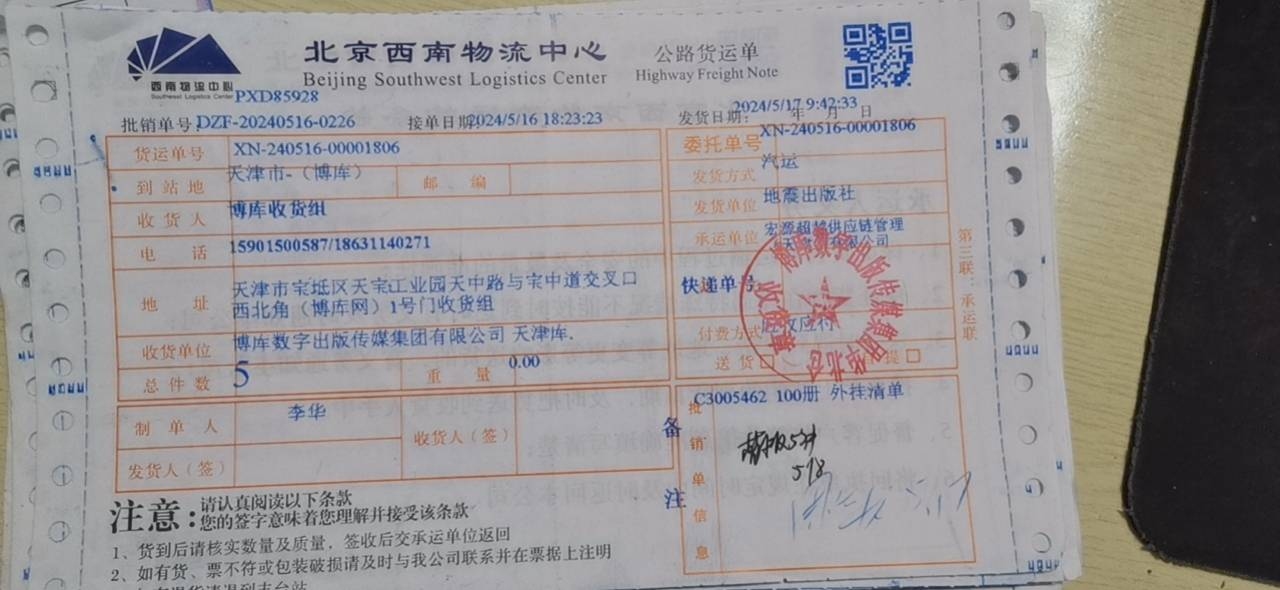 北京西南物流中心 公路货运单
Beijing Southwest Logistics Center Highway Freight Note
西南物流中心
Southwest Logistics Center
PXD85928
批销单号:DZF-20240516-0226 接单日期:2024/5/16 18:23:23 发货日期: 年 月 日 2024/5/17 9:42:33
货运单号 XN-240516-00001806 委托单号 XN-240516-00001806
到站地 天津市-(博库) 邮编 发货方式 汽运
收货人 博库收货组 发货单位 地震出版社
电话 15901500587/18631140271 承运单位 宏源超越供应链管理
有限公司
地址 天津市宝坻区天宝工业园天中路与宝中道交叉口 快递单号
西北角(博库网)1号门收货组
收货单位 博库数字出版传媒集团有限公司 天津库. 付费方式 应收应付
总件数 5 重量 0.00 送货□ 提□
博库数字出版传媒集团华北仓
收货章
制单人 李华 收货人(签) 备注 批销单信息 C3005462 100册 外挂清单
发货人(签)
5件
518
第三联:承运联
注意: 请认真阅读以下条款
您的签字意味着您理解并接受该条款
1、货到后请核实数量及质量,签收后交承运单位返回
2、如有货、票不符或包装破损请及时与我公司联系并在票据上注明